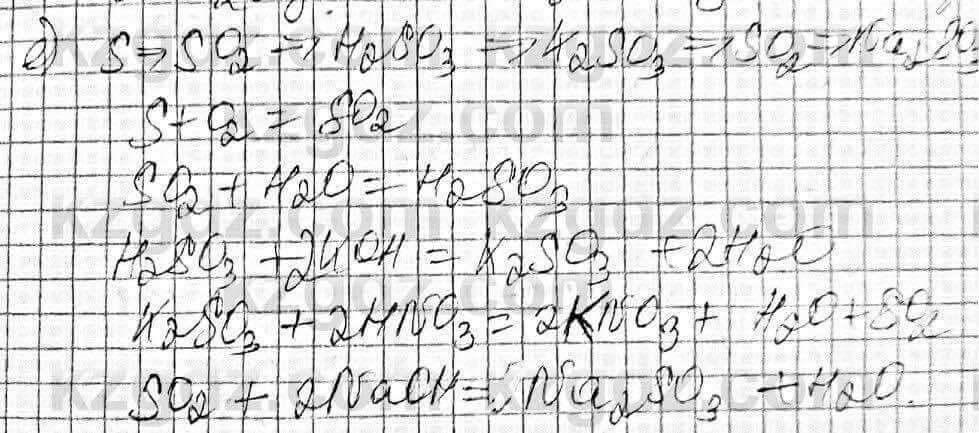 б) S => SO₂ => H₂SO₃ => K₂SO₃ => SO₂ => Na₂SO₃
S + O₂ = SO₂
SO₂ + H₂O = H₂SO₃
H₂SO₃ + 2KOH = K₂SO₃ + 2H₂O
K₂SO₃ + 2HNO₃ = 2KNO₃ + H₂O + SO₂
SO₂ + 2NaOH => Na₂SO₃ + H₂O.
kzgdz.com